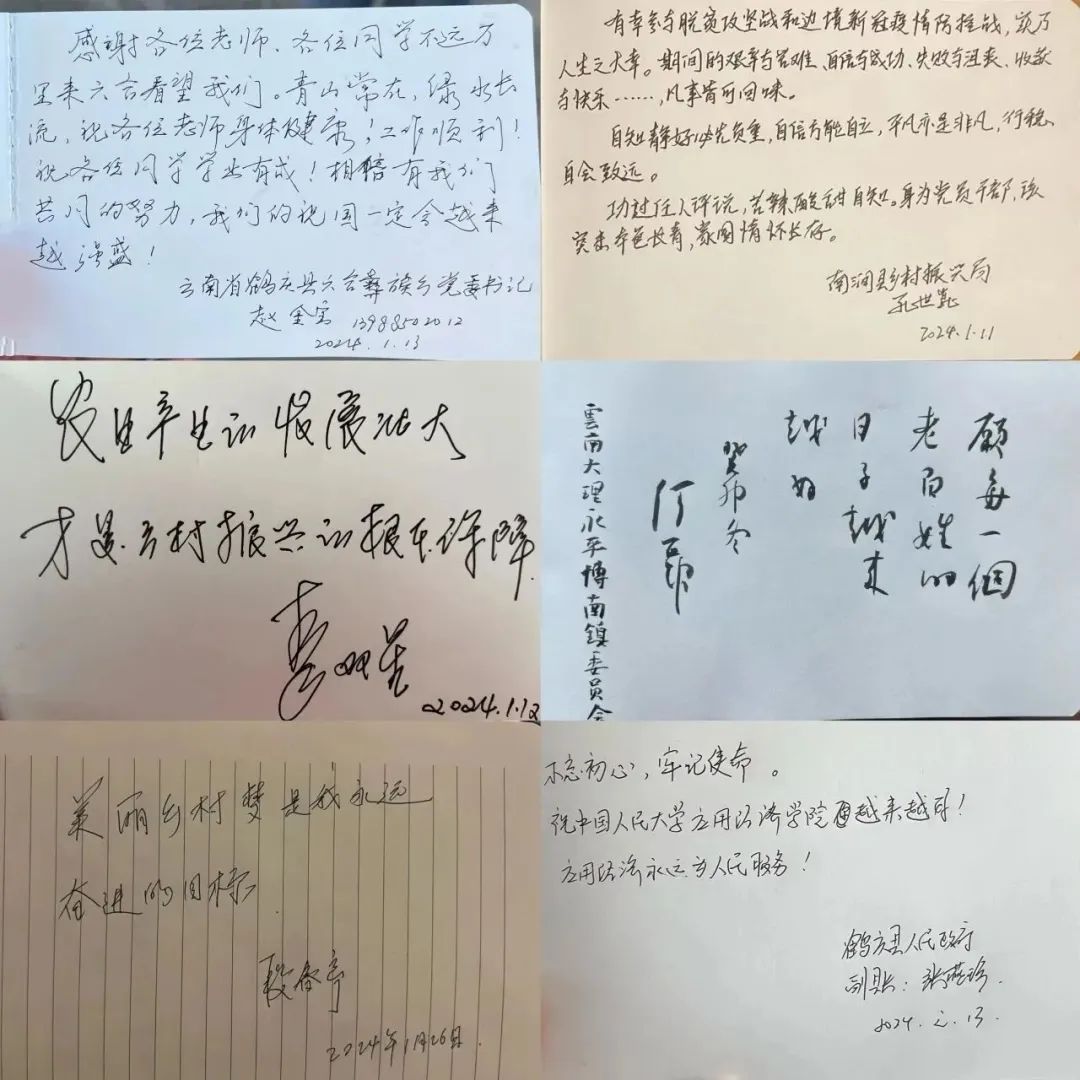 感谢各位老师、各位同学不远万
里来六合看望我们。青山常在,绿水长
流,祝各位老师身体健康!工作顺利!
祝各位同学学业有成!相信有我们
共同的努力,我们的祝国一定会越来
越强盛!
云南省鹤庆县六合彝族乡党委书记
赵金宝 13988502012
2024.1.13
有幸参与脱贫攻坚战和边境新冠疫情防控战,实乃
人生之大幸。期间的艰辛与苦难、自信与成功、失败与沮丧、收获
与快乐……,凡事皆可回味。
自知静好必先负重,自信方能自立,平凡亦是非凡,行稳
自会致远。
功过任人评说,苦辣酸甜自知。身为党员干部,该
突击本色长青,家国情怀长存。
南涧县乡村振兴局
孔世
2024.1.11
农业产业的发展壮大
才是乡村振兴的根本保障
李
2024.1.12
愿每一個
老百姓的
日子越来
越好
癸卯冬
雲南大理永平博南镇委員会
美丽乡村梦是我永远
奋进的目标
段春亭
2024年1月26日.
不忘初心,牢记使命。
祝中国人民大学应用经济学院越来越好!
应用经济永远为人民服务!
鹤庆县人民政府
副县长:张燕珍.
2024.1.13.